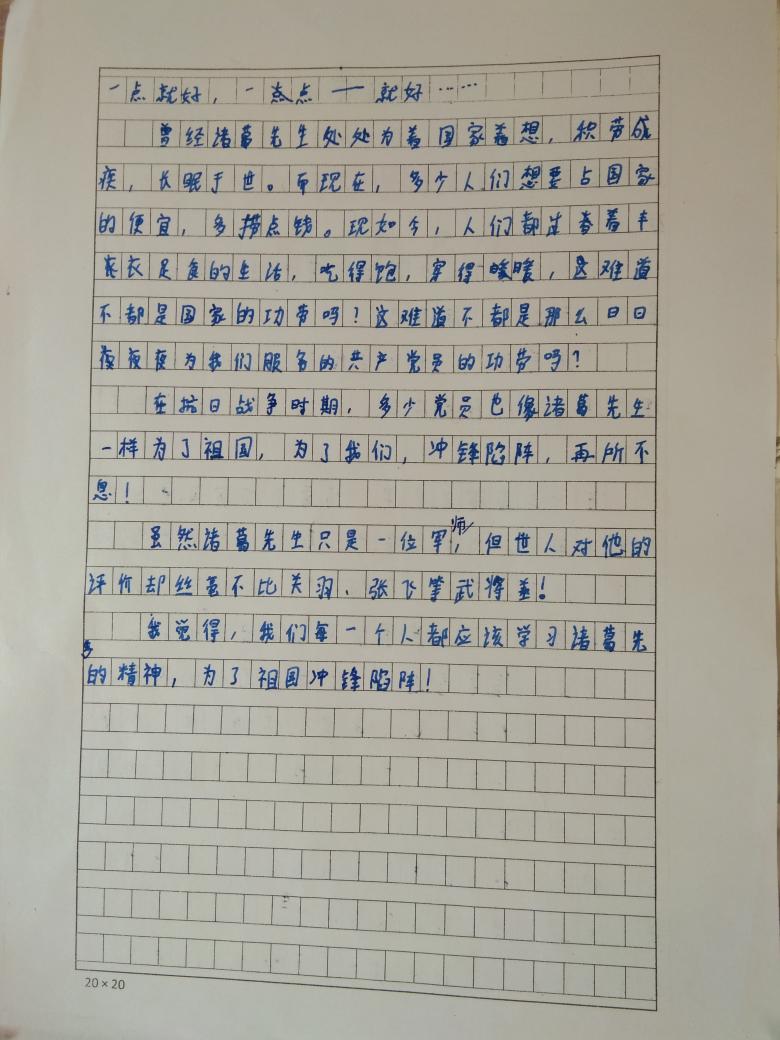 一点就好，一点点——就好……
曾经诸葛先生处处为着国家着想，积劳成
疾，长眠于世。而现在，多少人们想要占国家
的便宜，多捞点钱。现如今，人们都过着丰
衣足食的生活，吃得饱，穿得暖暖，这难道
不都是国家的功劳吗？这难道不都是那么日日
夜夜为我们服务的共产党员的功劳吗？
在抗日战争时期，多少党员也像诸葛先生
一样为了祖国，为了我们，冲锋陷阵，再所不
息！
虽然诸葛先生只是一位军师，但世人对他的
评价却丝毫不比关羽、张飞等武将差！
我觉得，我们每一个人都应该学习诸葛先
的精神，为了祖国冲锋陷阵！
20×20